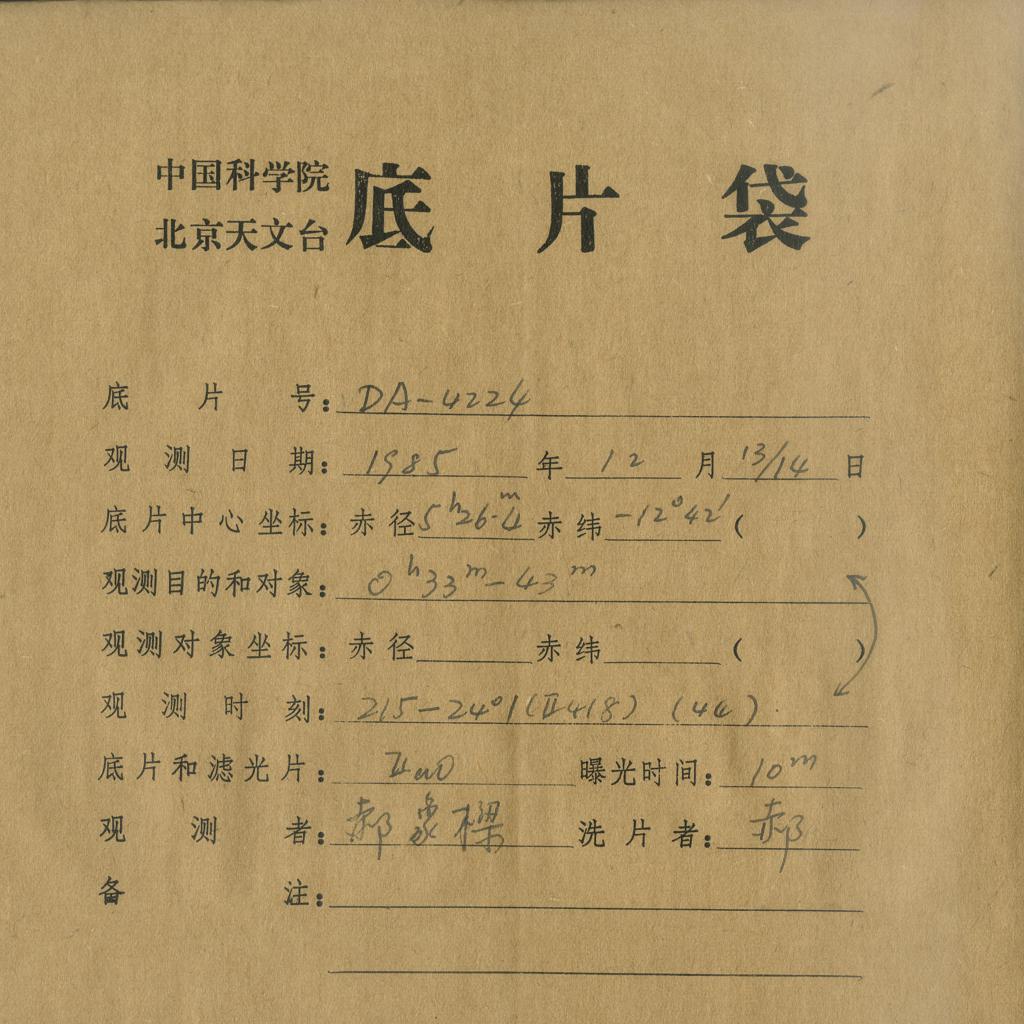 中国科学院
北京天文台
底片袋
底片号：DA-4224
观测日期：1985年12月13/14日
底片中心坐标：赤径5h26.m4赤纬-12°42′（ ）
观测目的和对象：0h33m-43m
观测对象坐标：赤径 赤纬 （ ）
观测时刻：215-24°1(II418) (44)
底片和滤光片：IIaO 曝光时间：10m
观测者：郝象樑 洗片者：郝
备注：